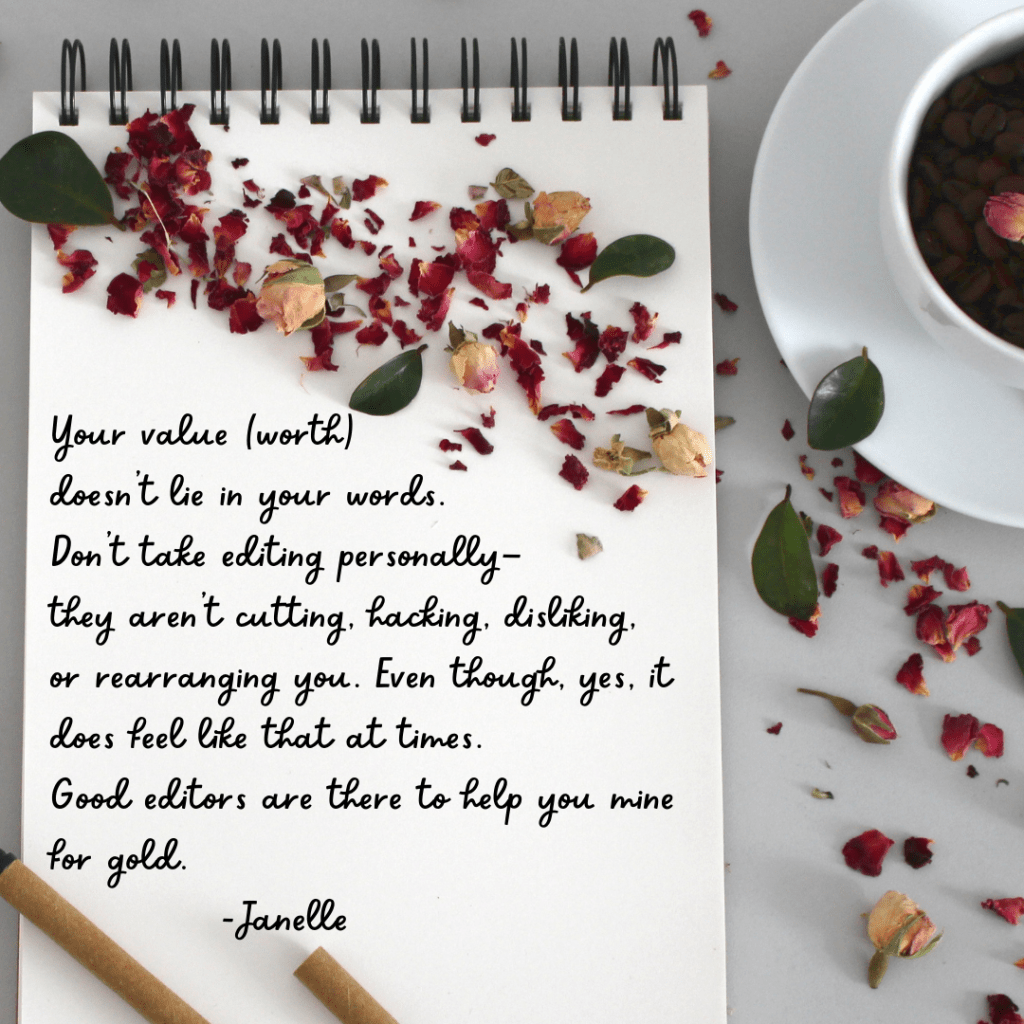 Your value (worth)
doesn't lie in your words.
Don't take editing personally—
they aren't cutting, hacking, disliking,
or rearranging you. Even though, yes, it
does feel like that at times.
Good editors are there to help you mine
for gold.
-Janelle